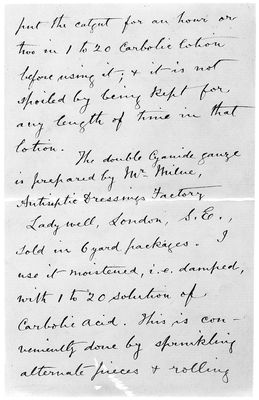 put the catgut for an hour or
two in 1 to 20 Carbolic lotion
before using it; & it is not
spoiled by being kept for
any length of time in that
lotion.
The double Cyanide gauze
is prepared by Mr Milne,
Antiseptic Dressings Factory
Ladywell, London, S.E.,
sold in 6 yard packages. I
use it moistened, i.e. damped,
with 1 to 20 solution of
Carbolic Acid. This is con-
veniently done by sprinkling
alternate pieces & rolling